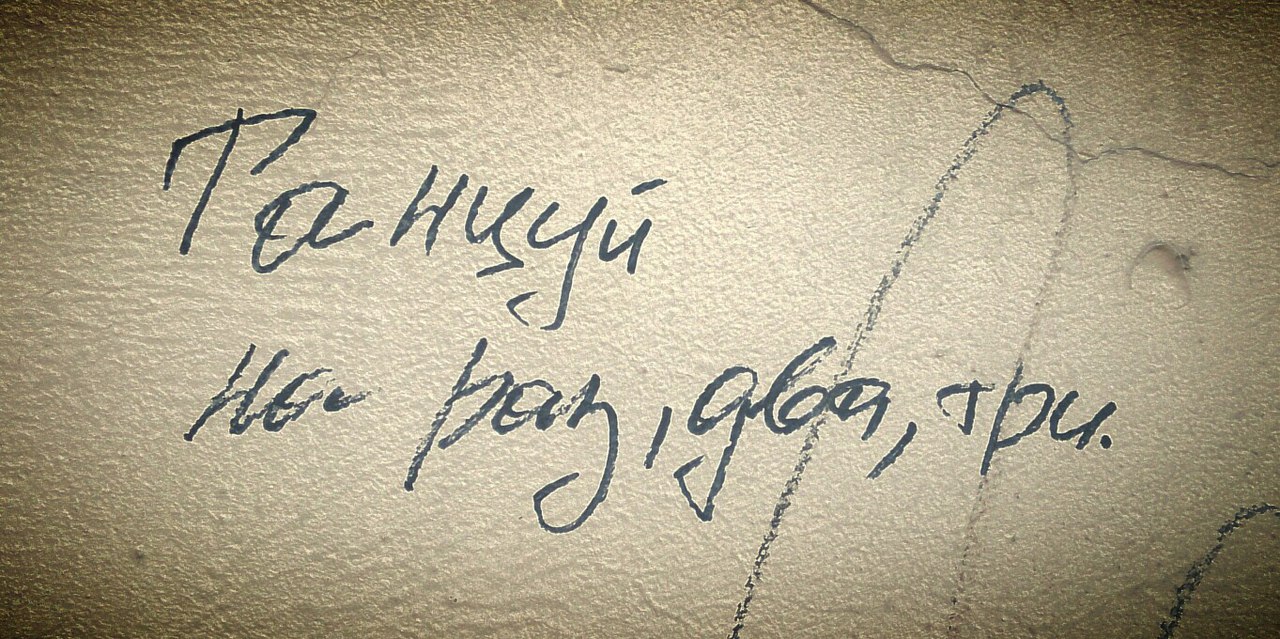 Танцуй
на раз, два, три.